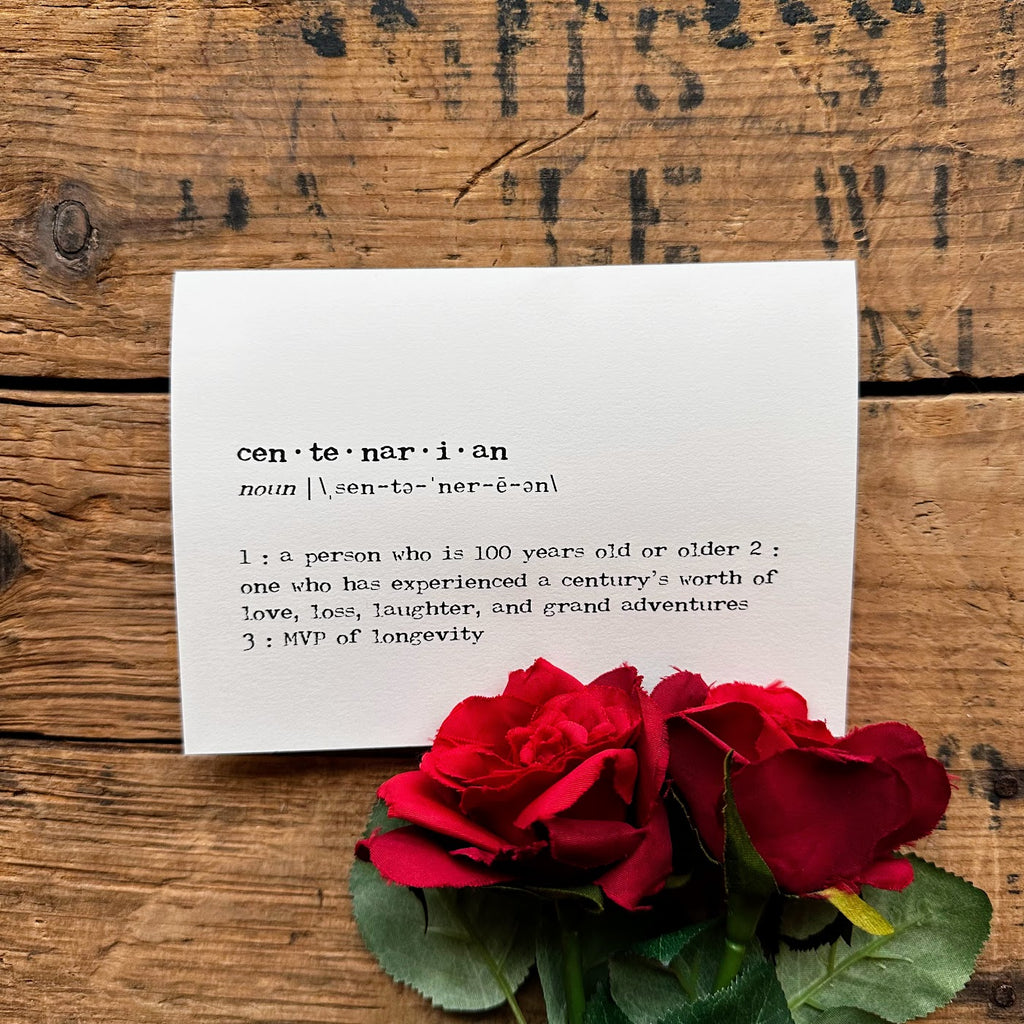 cen·te·nar·i·an
noun |\ˌsen-tə-ˈner-ē-ən\
1 : a person who is 100 years old or older 2 :
one who has experienced a century's worth of
love, loss, laughter, and grand adventures
3 : MVP of longevity